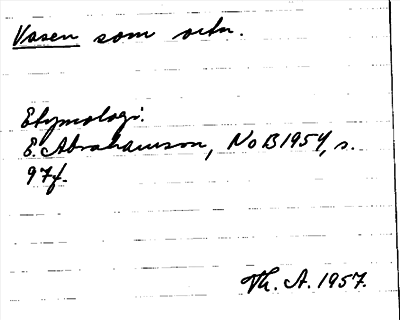 Vasen som ortn.
Etymologi:
E Abrahamson, NoB 1954, s.
97f.
Th. A. 1957.